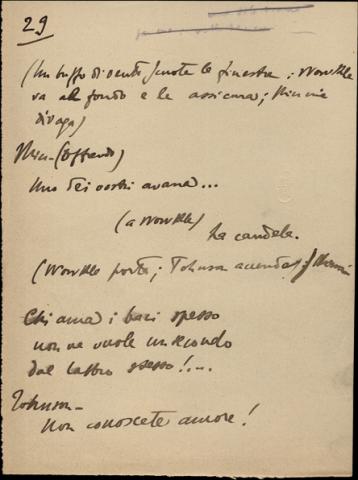 29
(Un buffo di vento scuote le finestre; Wowkle
va al fondo e le assicura; Minnie
divaga)
Min - (offrendo)
Uno dei vostri avana...
(a Wowkle)
La candela.
(Wowkle porta; Johnson accende;
Chi ama i baci spesso
non ne vuole un secondo
dal labbro stesso!...
Johnson -
Non conoscete amore!